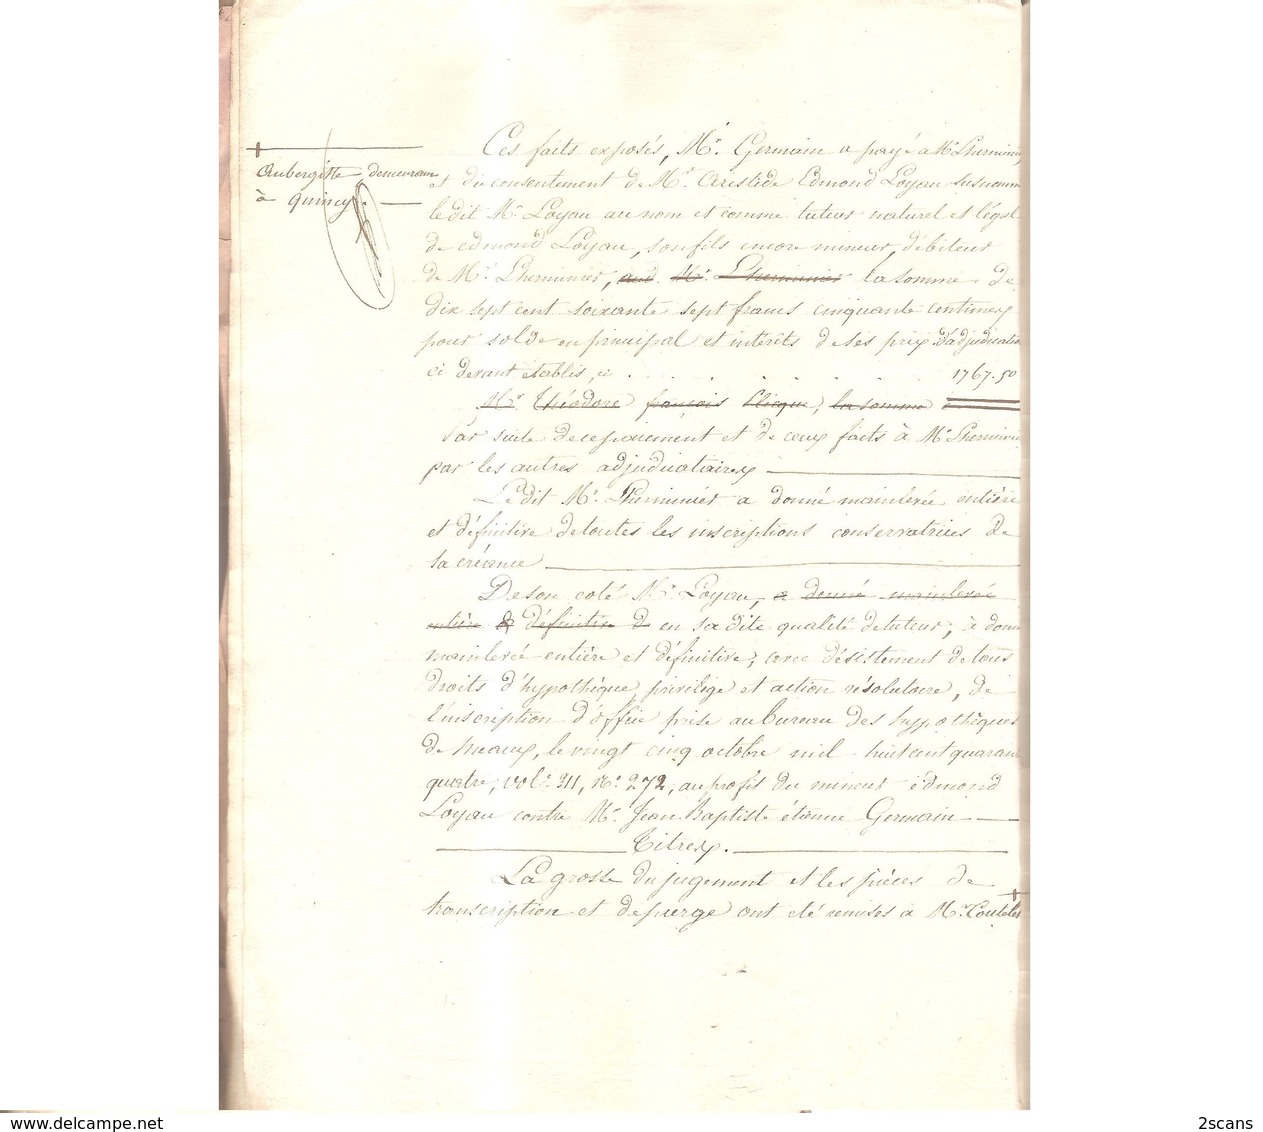 Ces faits exposés, Mr. Germain a payé à Mr Lherminier
Aubergiste demeurant
à Quincy.
et du consentement de Mr. Aristide Edmond Loyau susnommé
ledit Mr Loyau au nom et comme tuteur naturel et légal
de edmond Loyau, son fils encore mineur, débiteur
de Mr. Lherminier, aud. Mr. Lherminier la somme de
dix sept cent soixante sept francs cinquante centimes
pour solde en principal et intérêts de ses prix d'adjudication
ci devant établis, ci . . . . . . 1767.50
Mr Théodore françois Clicque, la somme
Par suite de ce paiement et de ceux faits à Mr Lherminier
par les autres adjudicataires
Ledit Mr. Lherminier a donné mainlevée entière
et définitive de toutes les inscriptions conservatrices de
sa créance
De son coté Mr. Loyau, a donné mainlevée
entière & définitive d en sa dite qualité de tuteur, à donné
mainlevée entière et définitive, avec désistement de tous
droits d'hypothèque, privilège et action résolutoire, de
l'inscription d'office prise au bureau des hypothèques
de meaux, le vingt cinq octobre mil huit cent quarante
quatre, vol. 311, No. 272, au profit du mineur edmond
Loyau contre Mr. Jean Baptiste étienne Germain
Titres.
La grosse du jugement et les pièces de
transcription et de purge ont eté remises à Mr.
2scans